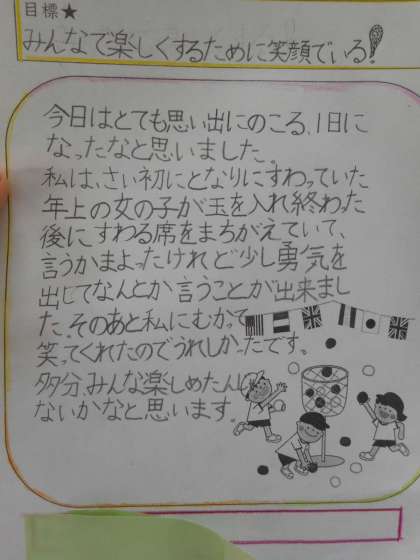 目標★
みんなで楽しくするために笑顔でいる!
今日はとても思い出にのこる、1日に
なったなと思いました。
私は、さい初にとなりにすわっていた
年上の女の子が玉を入れ終わった
後にすわる席をまちがえていて、
言うかまよったけれど少し勇気を
出してなんとか言うことが出来まし
た。そのあと私にむかって
笑ってくれたのでうれしかったです。
多分、みんな楽しめたんじゃ
ないかなと思います。